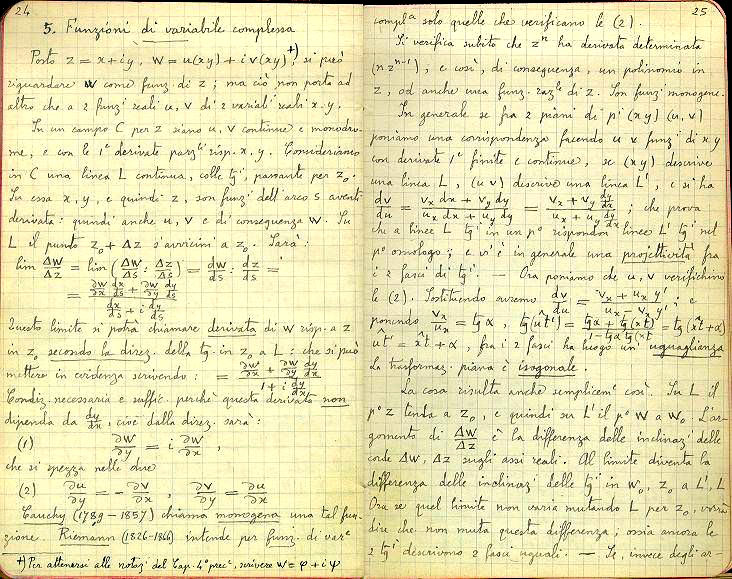 24
5. Funzioni di variabile complessa
Posto z = x+iy, w = u(xy) + i v(xy) +), si può
riguardare w come funz. di z; ma ciò non porta ad
altro che a 2 funzi reali u, v di 2 variabi reali x.y.
In un campo C per z siano u, v continue e monodro-
me, e con le 1e derivate parzli risp. x, y. Consideriamo
in C una linea L continua, colle tgi, passante per z0.
Su essa x, y, e quindi z, son funzi dell'arco s aventi
derivata: quindi anche u, v e di conseguenza w. Su
L il punto z0 + Δz s'avvicini a z0. Sarà:
lim Δw/Δz = lim (Δw/Δs : Δz/Δs) = dw/ds : dz/ds =
= (∂w/∂x dx/ds + ∂w/∂y dy/ds) / (dx/ds + i dy/ds)
Questo limite si potrà chiamare derivata di w risp. a z
in z0 secondo la direz. della tg. in z0 a L: che si può
mettere in evidenza scrivendo: = (∂w/∂x + ∂w/∂y dy/dx) / (1 + i dy/dx)
Condiz. necessaria e suffic. perchè questa derivata non
dipenda da dy/dx, cioè dalla direz. sarà:
(1) ∂w/∂y = i ∂w/∂x,
che si spezza nelle due
(2) ∂u/∂y = - ∂v/∂x, ∂v/∂y = ∂u/∂x
Cauchy (1789-1857) chiama monogena una tal fun-
zione. Riemann (1826-1866) intende per funz. di vare
+) Per attenersi alle notazi del Cap. 4° prece, scrivere w = φ + i ψ
25
compla solo quelle che verificano le (2).
Si verifica subito che zn ha derivata determinata
(n zn-1), e così, di conseguenza, un polinomio in
z, od anche una funz. razle di z. Son funzi monogene.
In generale se fra 2 piani di pi (xy) (u,v)
poniamo una corrispondenza facendo u v funzi di x y
con derivate 1e finite e continue, se (xy) descrive
una linea L, (uv) descrive una linea L', e si ha
dv/du = (vx dx + vy dy)/(ux dx + uy dy) = (vx + vy dy/dx)/(ux + uy dy/dx); che prova
che a linee L tgi in un po rispondon linee L' tgi nel
po omologo; e vi è in generale una projettività fra
i 2 fasci di tgi. — Ora poniamo che u, v verifichino
le (2). Sostituendo avremo dv/du = (vx + ux y')/(ux - vx y'); e
ponendo vx/ux = tg α, tg(ut') = (tg α + tg(xt))/(1 - tg α tg(xt)) = tg(xt+α)
ut' = xt + α, fra i 2 fasci ha luogo un'uguaglianza
La trasformaz. piana è isogonale.
La cosa risulta anche semplicemte così. Su L il
po z tenda a z0, e quindi su L' il po w a w0. L'ar-
gomento di Δw/Δz è la differenza delle inclinazi delle
corde Δw, Δz sugli assi reali. Al limite diventa la
differenza delle inclinazi delle tgi in w0, z0 a L', L
Ora se quel limite non varia mutando L per z0, vorrà
dire che non muta questa differenza; ossia ancora le
2 tgi descrivono 2 fasci uguali. — Se, invece degli ar-